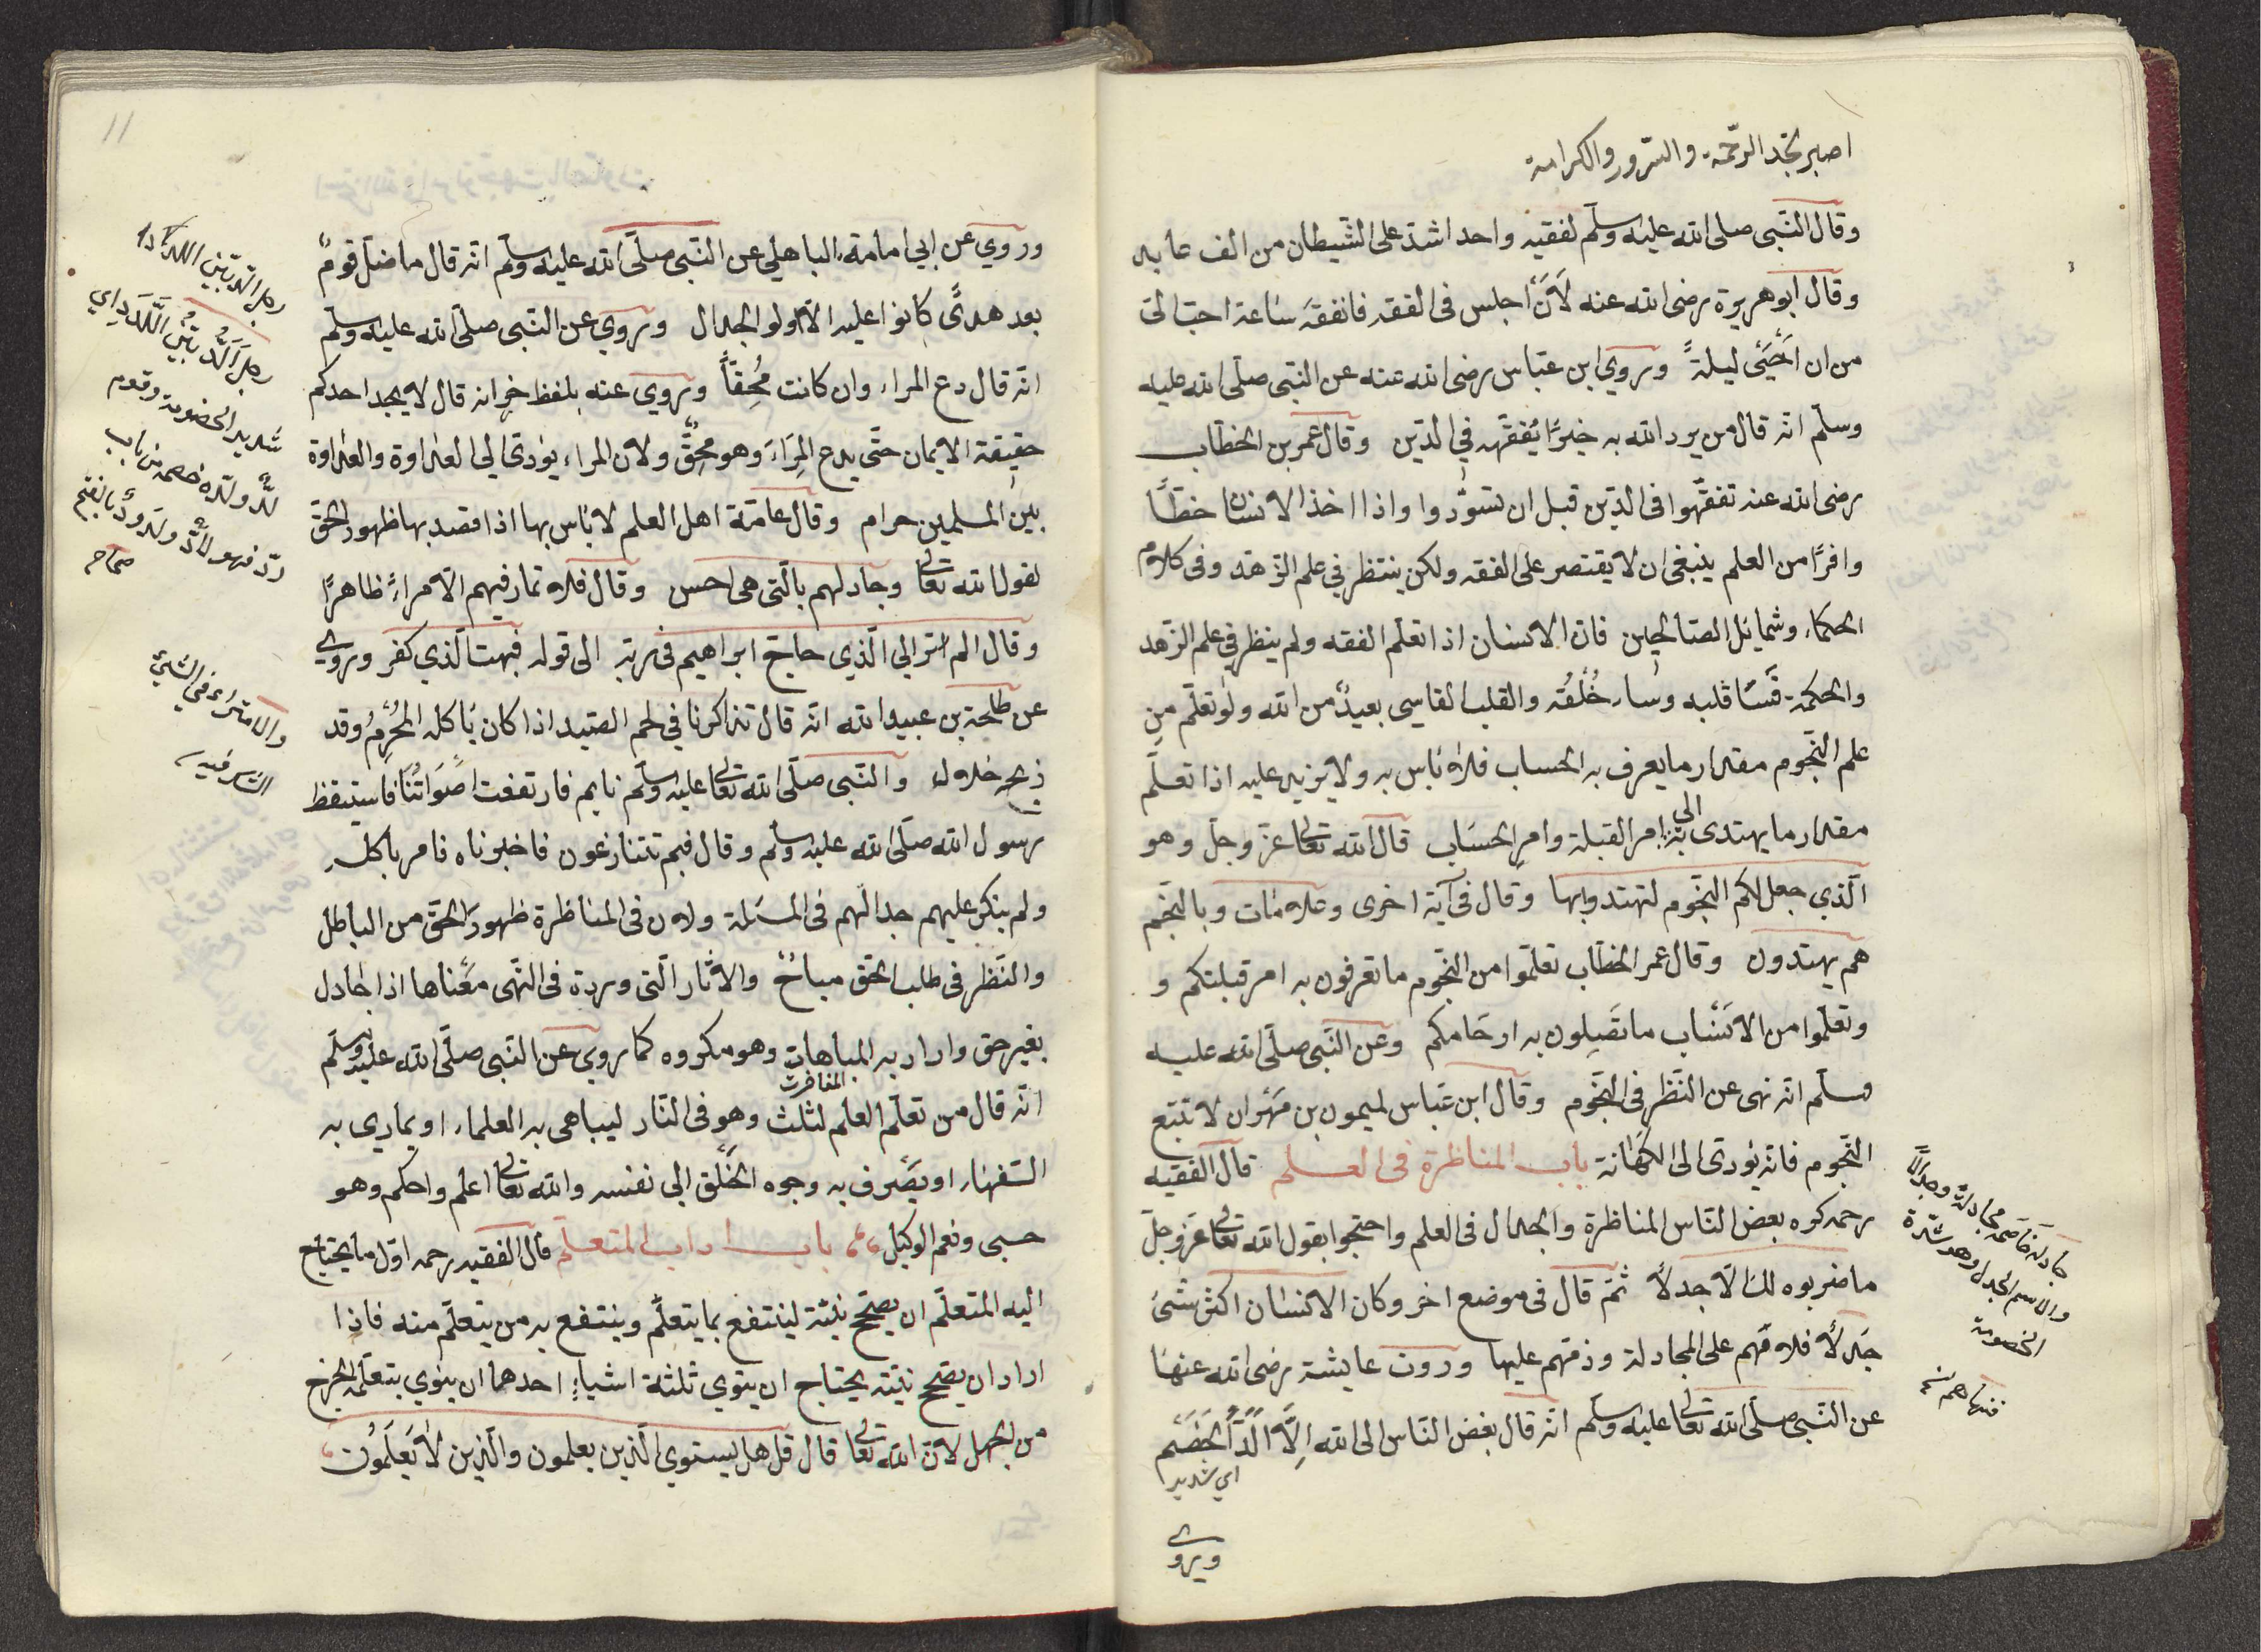 اصبر تجد الرحمة والسرور والكرامة
وقال النبي صلى الله عليه وسلم لفقيه واحد اشد على الشيطان من الف عابد
وقال ابو هريرة رضى الله عنه لَأَنْ اجلس فى الفقه فاتفقه ساعة احب الىّ
من ان اُحْيِىَ ليلةً وروي ابن عباس رضى الله عنه عن النبى صلى الله عليه
وسلم انه قال من يرد الله به خيرًا يُفَقّهه فِي الدين وقال عمر بن الخطاب
رضى الله عنه تفقّهوا فى الدين قبل ان تسوّدوا واذا اخذ الانسان حظًّا
وافرًا من العلم ينبغى ان لا يقتصر على الفقه ولكن ينتظر فى علم الزهد وفى كلام
الحكماء وشمائل الصالحين فان الانسان اذا تعلم الفقه ولم ينظر فى علم الزهد
والحكمة قسَا قلبه وساء خُلُقُه والقلب القاسى بعيدٌ من الله ولو تعلّم من
علم النجوم مقدار ما يعرف به الحساب فلا باس به ولا يزيد عليه اذا تعلّم
مقدار ما يهتدى به الى امر القبلة وامر الحساب قال الله تعالى عزّ وجلّ وهو
الّذي جعل لكم النجوم لتهتدوا بها وقال فى آية اخرى وعلامات وبالنجم
هم يهتدون وقال عمر الخطاب تعلّموا من النجوم ما تعرفون به امر قبلتكم و
وتعلموا من الانساب ما تَصِلون به ارحامكم وعن النبى صلّى الله عليه
وسلم انه نهى عن النظر فى النجوم وقال ابن عباس لميمون بن مَهْران لا تتبع
النجوم فانه يؤدى الى الكهانة باب المناظرة فى العلم قال الفقيه
رحمه كره بعض الناس المناظرة والجدال فى العلم واحتجوا بقول الله تعالى عزّ وجلّ
ما ضربوه لك الّا جدلًا ثم قال فى موضع اخر وكان الانسان اكثر شئ
جَدلًا فلامَهم على المجادلة وذمّهم عليها وروت عايشة رضى الله عنها
عن النبى صلى الله تعالى عليه وسلم انه قال بغض الناس الى الله اِلَّا اَلَدَّ الْخَصْم
اى شديد
ويروى
جادله خاصمه مجادلة وجدالًا
والاسم الجدل وهو شدّة
الخصومة
11
وروي عن ابي امامة الباهلي عن النبى صلّى الله عليه وسلم انه قال ما ضلّ قومٌ
بعد هدىً كانوا عليه الّا اولو الجدال وروي عن النبى صلّى الله عليه وسلم
انه قال دع المراء وان كانت مُحِقاً وروي عنه بلفظ خر انه قال لا يجد احدكم
حقيقة الايمان حتّى يدع المِرَاءَ وهو مُحِقٌّ ولان المراء يؤدى الى العداوة والعداوة
بين المسلمين حرام وقال عامّة اهل العلم لا باس بها اذا قصد بها ظهور الحق
لقول الله تعالى وجادلهم بالّتى هى احسن وقال فلا تمار فيهم الا مراءً ظاهرًا
وقال الم تر الى الّذي حاجّ ابراهيم فى ربه الى قوله فبهت الّذي كفر وروى
عن طلحة بن عبيد الله انه قال تذاكرنا في لحم الصيد اذا كان يأكله المُحْرِمُ وقد
ذبحه حلال والنبى صلّى الله تعالى عليه وسلم نايم فارتفعت اصواتنا فاستيقظ
رسول الله صلّى الله عليه وسلم وقال فيم تتنازعون فاخبرناه فامر باكله
ولم ينكر عليهم جدالهم فى المسئلة ولان فى المناظرة ظهور الحقّ من الباطل
والنظر فى طلب الحق مباحٌ والاثار الّتى وردة فى النهى معناها اذا جادل
بغير حق واراد به المباهات وهو مكروه كما روي عن النبى صلّى الله عليه وسلم
المفاخرت
انه قال من تعلّم العلم لثلث وهو فى النار ليباهى به العلماء او يمارى به
السفهاء او يَصْرف به وجوه الخَلْق الى نفسه والله تعالى اعلم واحكم وهو
حسبى ونعم الوكيل باب اداب المتعلّم قال الفقيه رحمه اوّل ما يحتاج
اليه المتعلّم ان يصحّح نيّته لينتفع بما يتعلّم وينتفع به من يتعلّم منه فاذا
اراد ان يصحح نيّته يحتاج ان ينوي ثلثة اشياءٍ احدهما ان ينوي بتعلّمه الخرج
من الجهل لان الله تعالى قال قل هل يستوي الّذين يعلمون والّذين لا يَعلَمُون
رجل اَلَدُّ بَيِّنُ اللَّدَدِ اى
شديد الخصومة وقوم
لُدٌّ ولدّه خصمه من باب
ردّ فهو لادٌّ ولدودٌ بالفتح
صحاح
والامتراء فى الشئ
الشك فيه